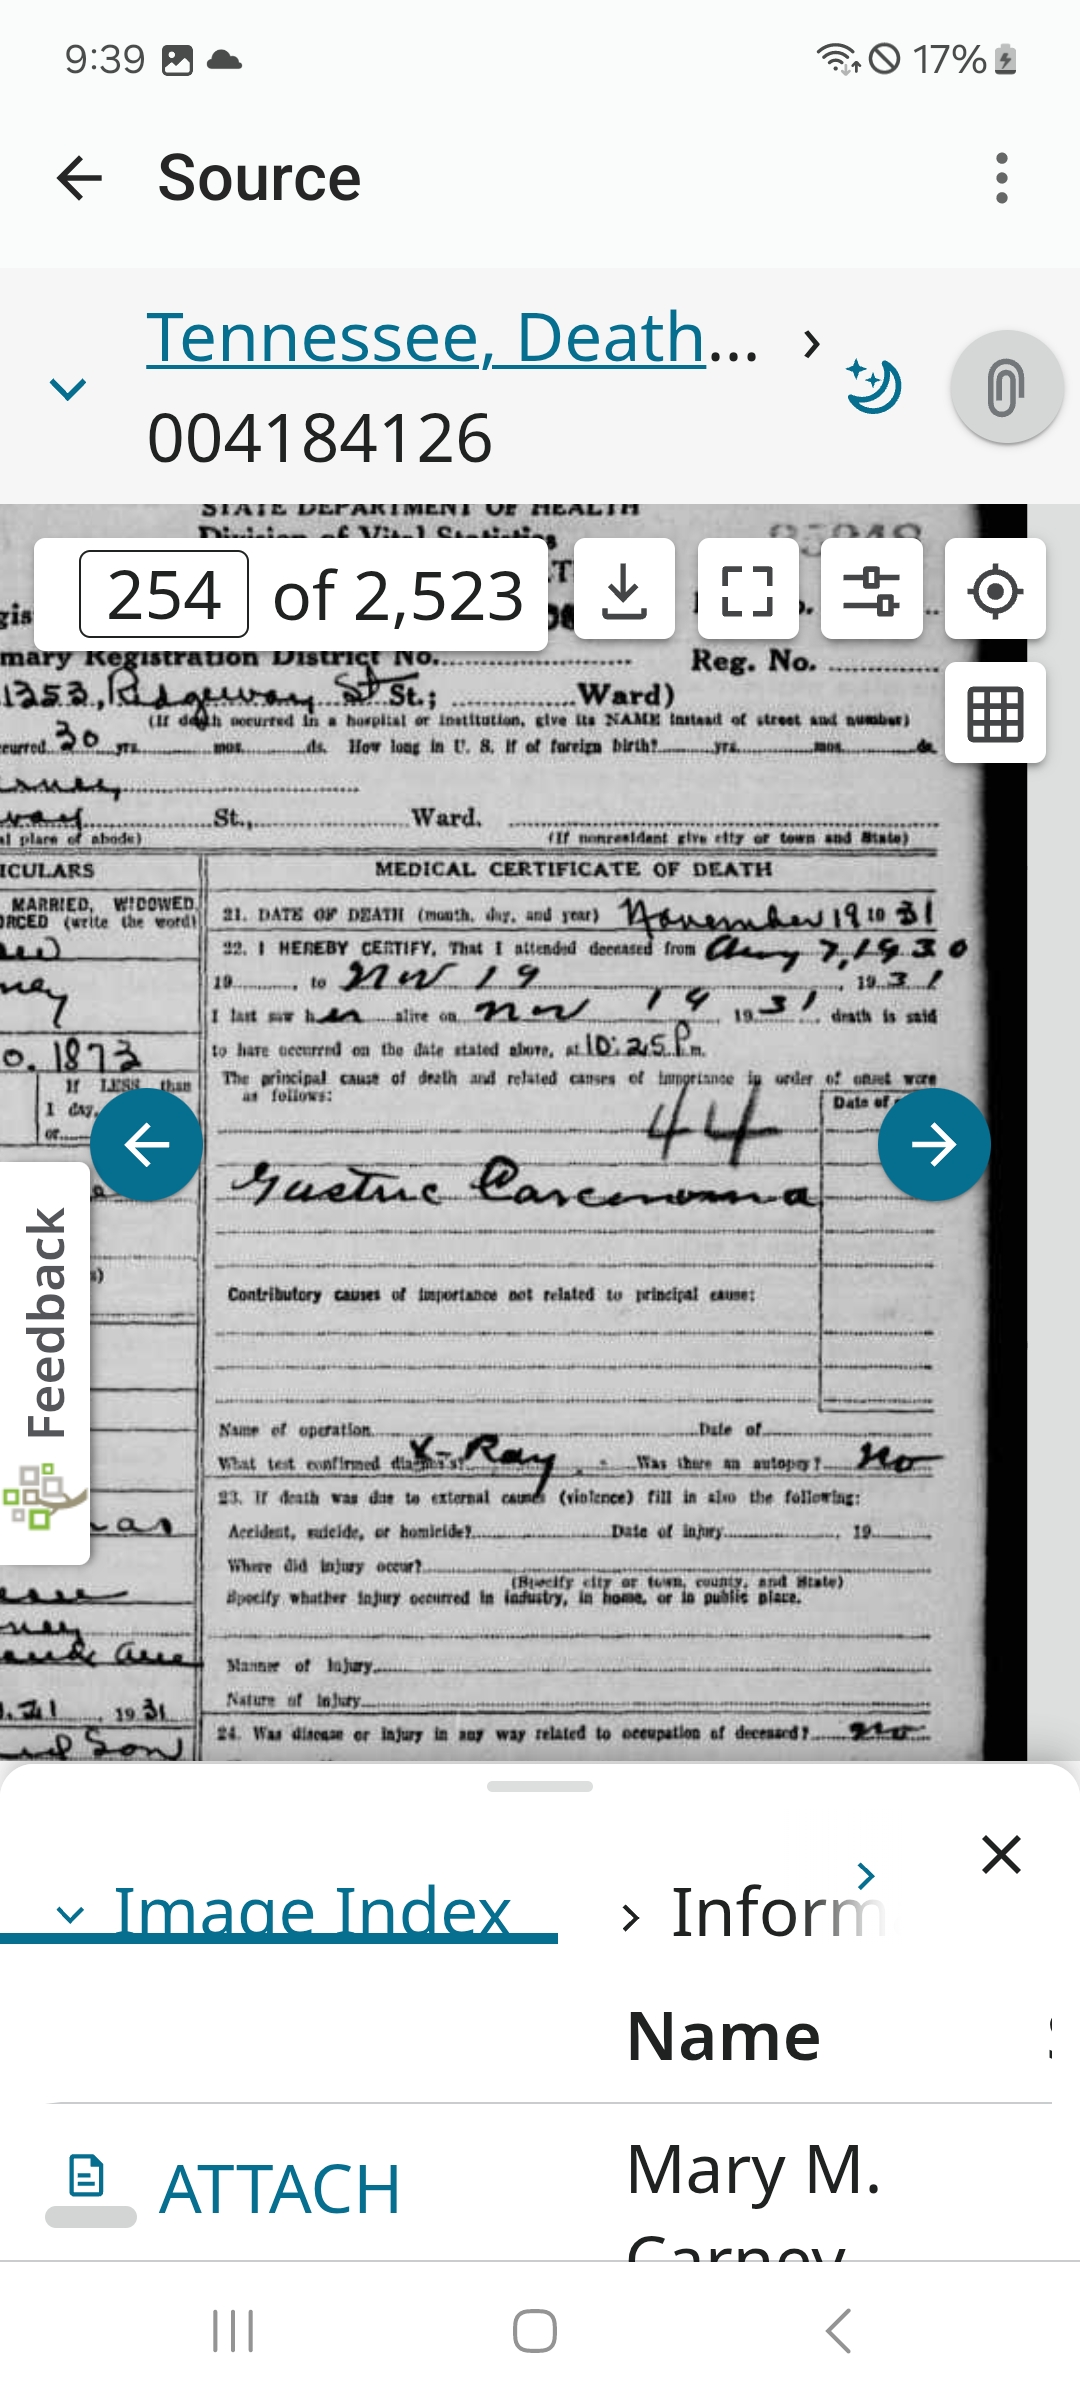 9:39 17%
Source
Tennessee, Death...
004184126
STATE DEPARTMENT OF HEALTH
Division of Vital Statistics
254 of 2,523
mary Registration District No. Reg. No.
1353, Ridgeway St St.; Ward)
(If death occurred in a hospital or institution, give its NAME instead of street and number)
curred 30 yrs. mos. ds. How long in U. S. if of foreign birth? yrs. mos. ds.
St., Ward.
al place of abode) (If nonresident give city or town and State)
ICULARS MEDICAL CERTIFICATE OF DEATH
MARRIED, WIDOWED,
ORCED (write the word)
21. DATE OF DEATH (month, day, and year) November 19 19 31
22. I HEREBY CERTIFY, That I attended deceased from Aug 7, 1930
19 , to Nov 19 , 19 31
I last saw her alive on Nov 19 , 19 31 . death is said
0. 1873 to have occurred on the date stated above, at 10:25 P.m.
If LESS than
1 day,
or
The principal cause of death and related causes of importance in order of onset were
as follows:
Date of
44
Gastric Carcinoma
Contributory causes of importance not related to principal cause:
Name of operation Date of
What test confirmed diagnosis? X-Ray Was there an autopsy? No
23. If death was due to external causes (violence) fill in also the following:
Accident, suicide, or homicide? Date of injury , 19
Where did injury occur?
(Specify city or town, county, and State)
Specify whether injury occurred in industry, in home, or in public place.
Manner of injury
Nature of injury
1931
24. Was disease or injury in any way related to occupation of deceased? no
Son
Feedback
Image Index Inform
Name
ATTACH Mary M.
Carney